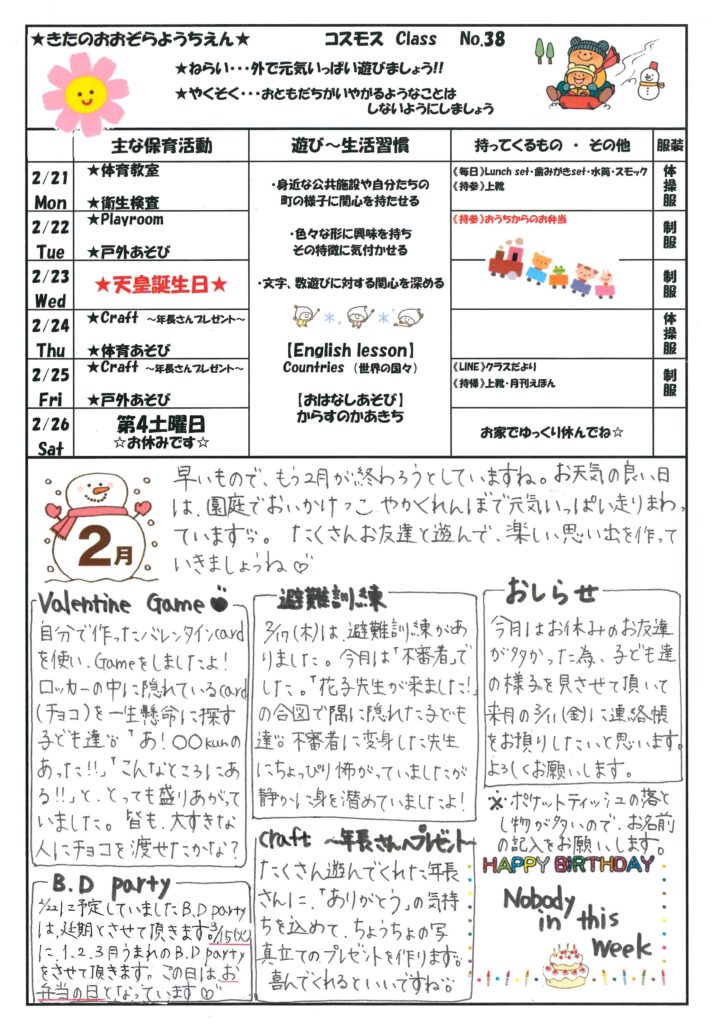 ★きたのおおぞらようちえん★ コスモス Class No.38
★ねらい・・・外で元気いっぱい遊びましょう!!
★やくそく・・・おともだちがいやがるようなことは
しないようにしましょう
主な保育活動 遊び～生活習慣 持ってくるもの ・ その他 服装
2/21 Mon
★体育教室
★衛生検査
《毎日》Lunch set・歯みがきset・水筒・スモック
《持参》上靴
体操服
2/22 Tue
★Playroom
★戸外あそび
《持参》おうちからのお弁当
制服
2/23 Wed
★天皇誕生日★
制服
2/24 Thu
★Craft ～年長さんプレゼント～
★体育あそび
体操服
2/25 Fri
★Craft ～年長さんプレゼント～
★戸外あそび
《LINE》クラスだより
《持帰》上靴・月刊えほん
制服
2/26 Sat
第4土曜日
☆お休みです☆
お家でゆっくり休んでね☆
・身近な公共施設や自分たちの
町の様子に関心を持たせる
・色々な形に興味を持ち
その特徴に気付かせる
・文字、数遊びに対する関心を深める
【English lesson】
Countries （世界の国々）
【おはなしあそび】
からすのかあきち
2月
早いもので、もう2月が終わろうとしていますね。お天気の良い日
は、園庭でおいかけっこやかくれんぼで元気いっぱい走りまわっ
ています。たくさんお友達と遊んで、楽しい思い出を作って
いきましょうね♡
Valentine Game
自分で作ったバレンタインcard
を使い、Gameをしましたよ！
ロッカーの中に隠れているcard
(チョコ)を一生懸命に探す
子ども達。「あ！〇〇kunの
あった!!」「こんなところにあ
る!!」と、とっても盛りあがって
いました。皆も、大すきな
人にチョコを渡せたかな？
B.D party
2/22に予定していましたB.D party
は、延期とさせて頂きます。3/15(火)
に、1、2、3月うまれのB.D party
をさせて頂きます。この日は、お
弁当の日となっています♡
避難訓練
2/17(木)は、避難訓練があ
りました。今月は「不審者」で
した。「花子先生が来ました！」
の合図で隅に隠れた子ども
達。不審者に変身した先生
にちょっぴり怖がっていましたが
静かに身を潜めていましたよ！
Craft ～年長さんへプレゼント～
たくさん遊んでくれた年長
さんに、「ありがとう」の気持
ちを込めて、ちょうちょの写
真立てのプレゼントを作ります。
喜んでくれるといいですね♡
おしらせ
今月はお休みのお友達
が多かった為、子ども達
の様子を見させて頂いて
来月の3/11(金)に連絡帳
をお預りしたいと思います。
よろしくお願いします。
※・ポケットティッシュの落と
し物が多いので、お名前
の記入をお願いします。
HAPPY BIRTHDAY
Nobody
in this
Week